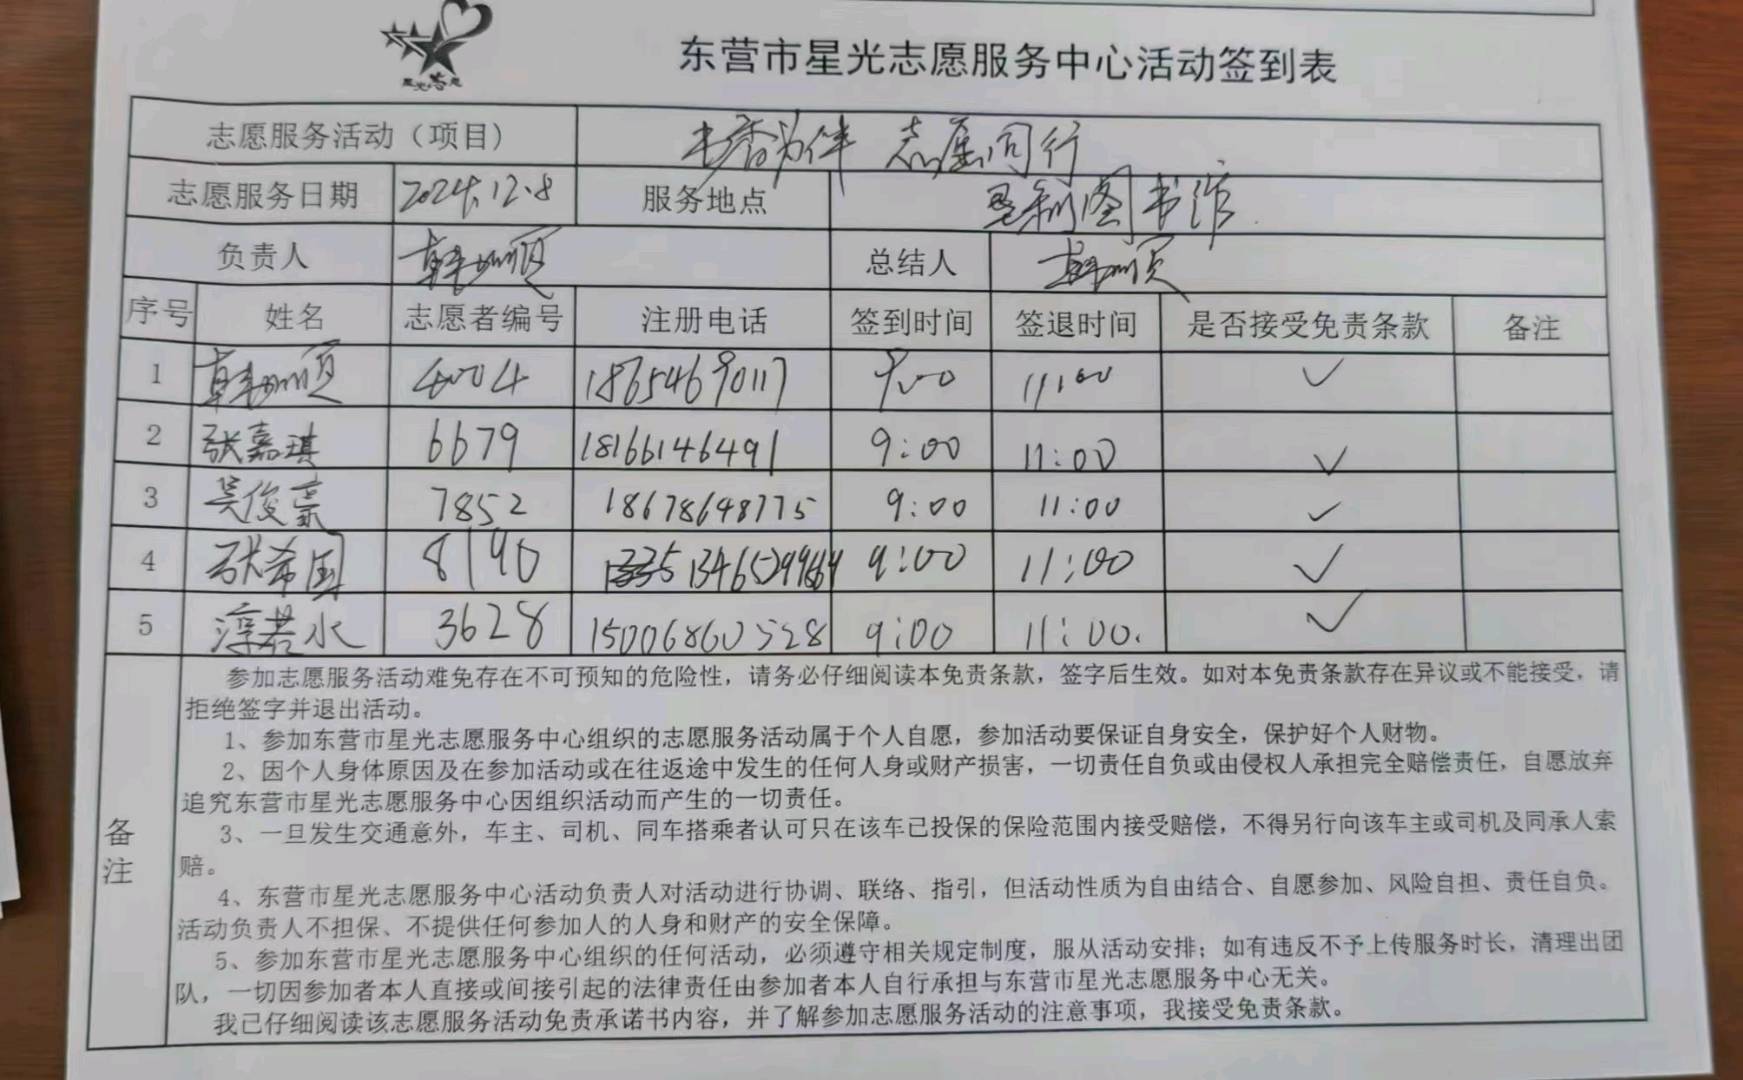 东营市星光志愿服务中心活动签到表
志愿服务活动（项目） 书香为伴 志愿同行
志愿服务日期 2024.12.8 服务地点 垦利图书馆
负责人 总结人
序号 姓名 志愿者编号 注册电话 签到时间 签退时间 是否接受免责条款 备注
1 4004 18654690117 9:00 11:00 ✓
2 张嘉琪 6679 18166146491 9:00 11:00 ✓
3 吴俊豪 7852 18678648775 9:00 11:00 ✓
4 张希国 8190 9:00 11:00 ✓
5 淳若水 3628 15006860528 9:00 11:00. ✓
备注
参加志愿服务活动难免存在不可预知的危险性，请务必仔细阅读本免责条款，签字后生效。如对本免责条款存在异议或不能接受，请
拒绝签字并退出活动。
1、参加东营市星光志愿服务中心组织的志愿服务活动属于个人自愿，参加活动要保证自身安全，保护好个人财物。
2、因个人身体原因及在参加活动或在往返途中发生的任何人身或财产损害，一切责任自负或由侵权人承担完全赔偿责任，自愿放弃
追究东营市星光志愿服务中心因组织活动而产生的一切责任。
3、一旦发生交通意外，车主、司机、同车搭乘者认可只在该车已投保的保险范围内接受赔偿，不得另行向该车主或司机及同承人索
赔。
4、东营市星光志愿服务中心活动负责人对活动进行协调、联络、指引，但活动性质为自由结合、自愿参加、风险自担、责任自负。
活动负责人不担保、不提供任何参加人的人身和财产的安全保障。
5、参加东营市星光志愿服务中心组织的任何活动，必须遵守相关规定制度，服从活动安排；如有违反不予上传服务时长，清理出团
队，一切因参加者本人直接或间接引起的法律责任由参加者本人自行承担与东营市星光志愿服务中心无关。
我已仔细阅读该志愿服务活动免责承诺书内容，并了解参加志愿服务活动的注意事项，我接受免责条款。